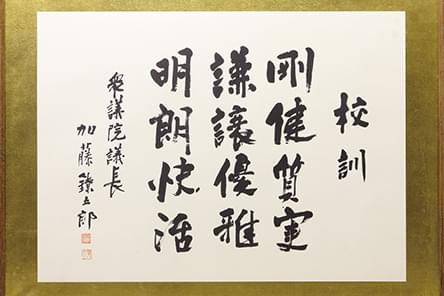 校訓
剛健質実
謙譲優雅
明朗快活
衆議院議長
加藤鐐五郎